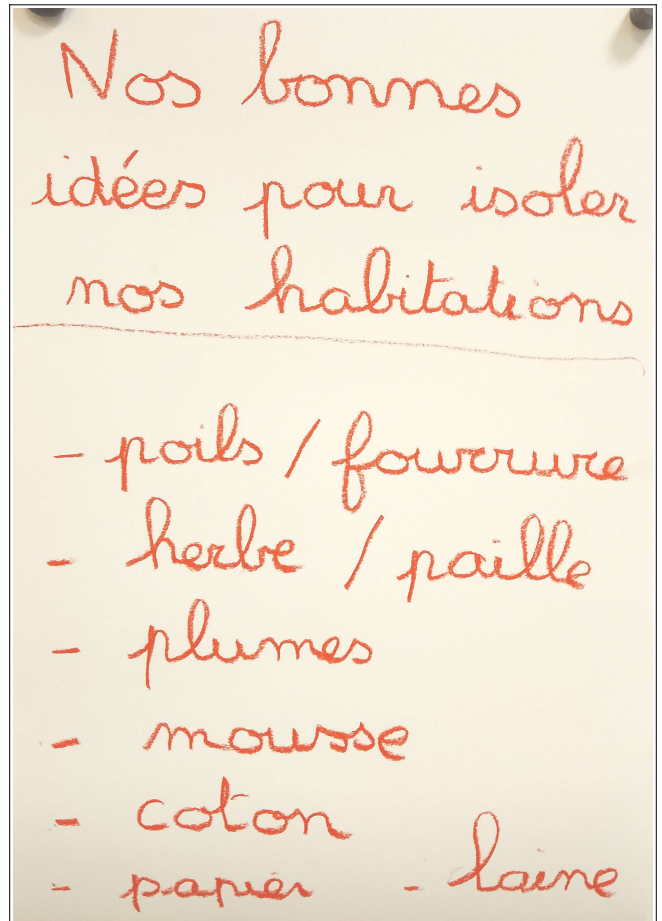 Nos bonnes
idées pour isoler
nos habitations
- poils / fourrure
- herbe / paille
- plumes
- mousse
- coton
- papier - laine